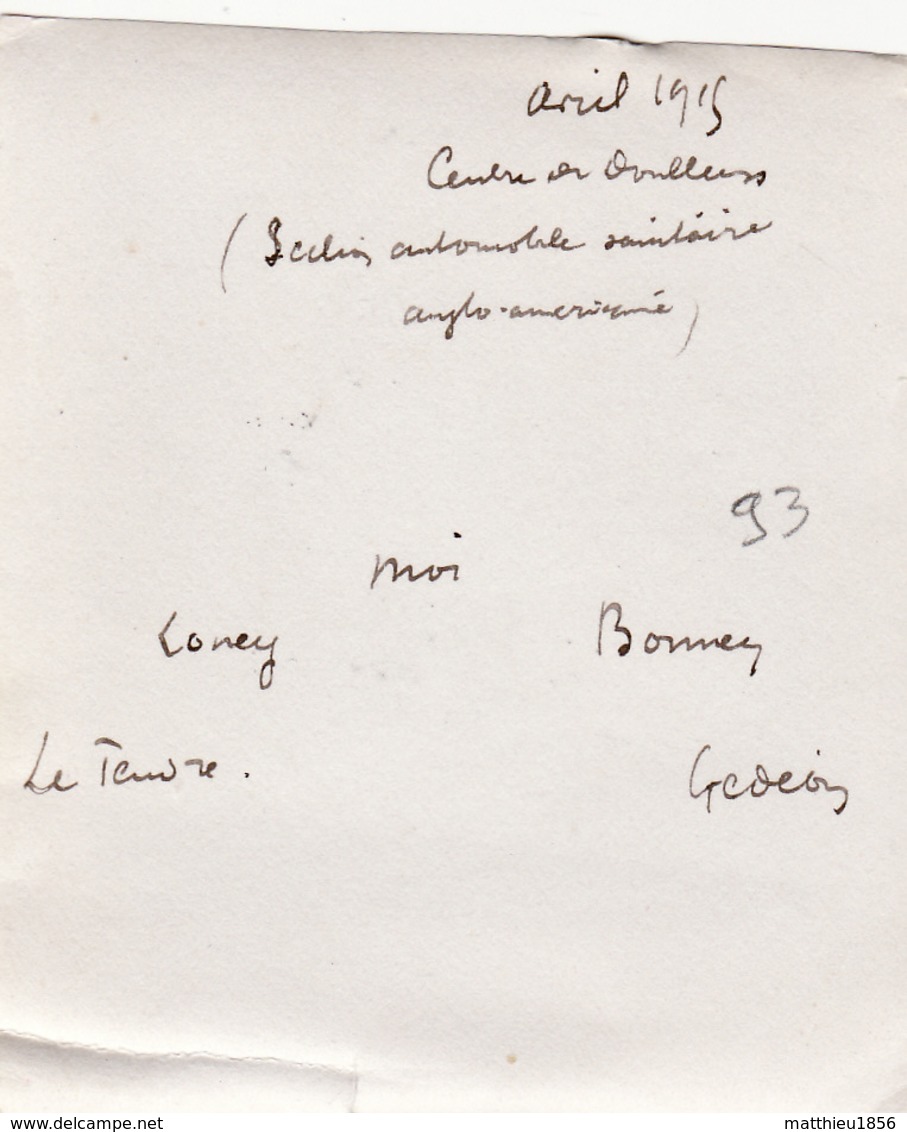 Avril 1915
Centre de Doullens
(Section automobile sanitaire
anglo-américaine)
93
moi
Loney Bonney
Le Tendre. Gedeon
delcampe.net
matthieu1856